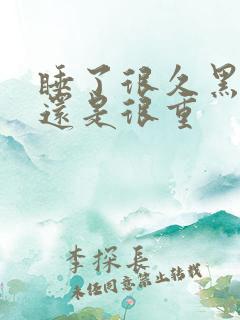 睡了很久黑
還是很重
李探長
未經同意禁止轉載